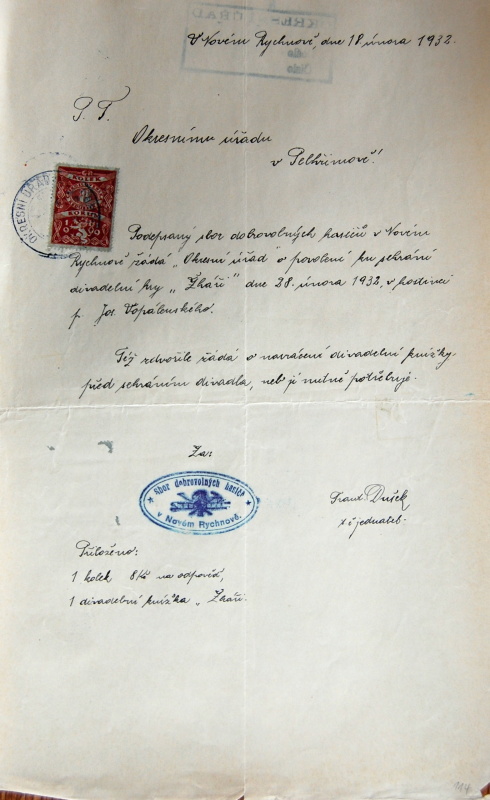 V Novém Rychnově, dne 18 února 1932.
P. T.
Okresnímu úřadu
v Pelhřimově!
OKRESNÍ ÚŘAD
KOLEK
Podepsaný sbor dobrovolných hasičů v Novém
Rychnově žádá „Okresní úřad" o povolení ku sehrání
divadelní hry „Žháři" dne 28. února 1932, v hostinci
p. Jos. Vopálenského.
Též zdvořile žádá o navrácení divadelní knížky
před sehráním divadla, neb ji nutně potřebuje.
Za:
Sbor dobrovolných hasičů
v Novém Rychnově.
Frant. Dušek
t č jednatel.
Přiloženo:
1 kolek 8 Kč na odpověď,
1 divadelní knížka „Žháři.
114